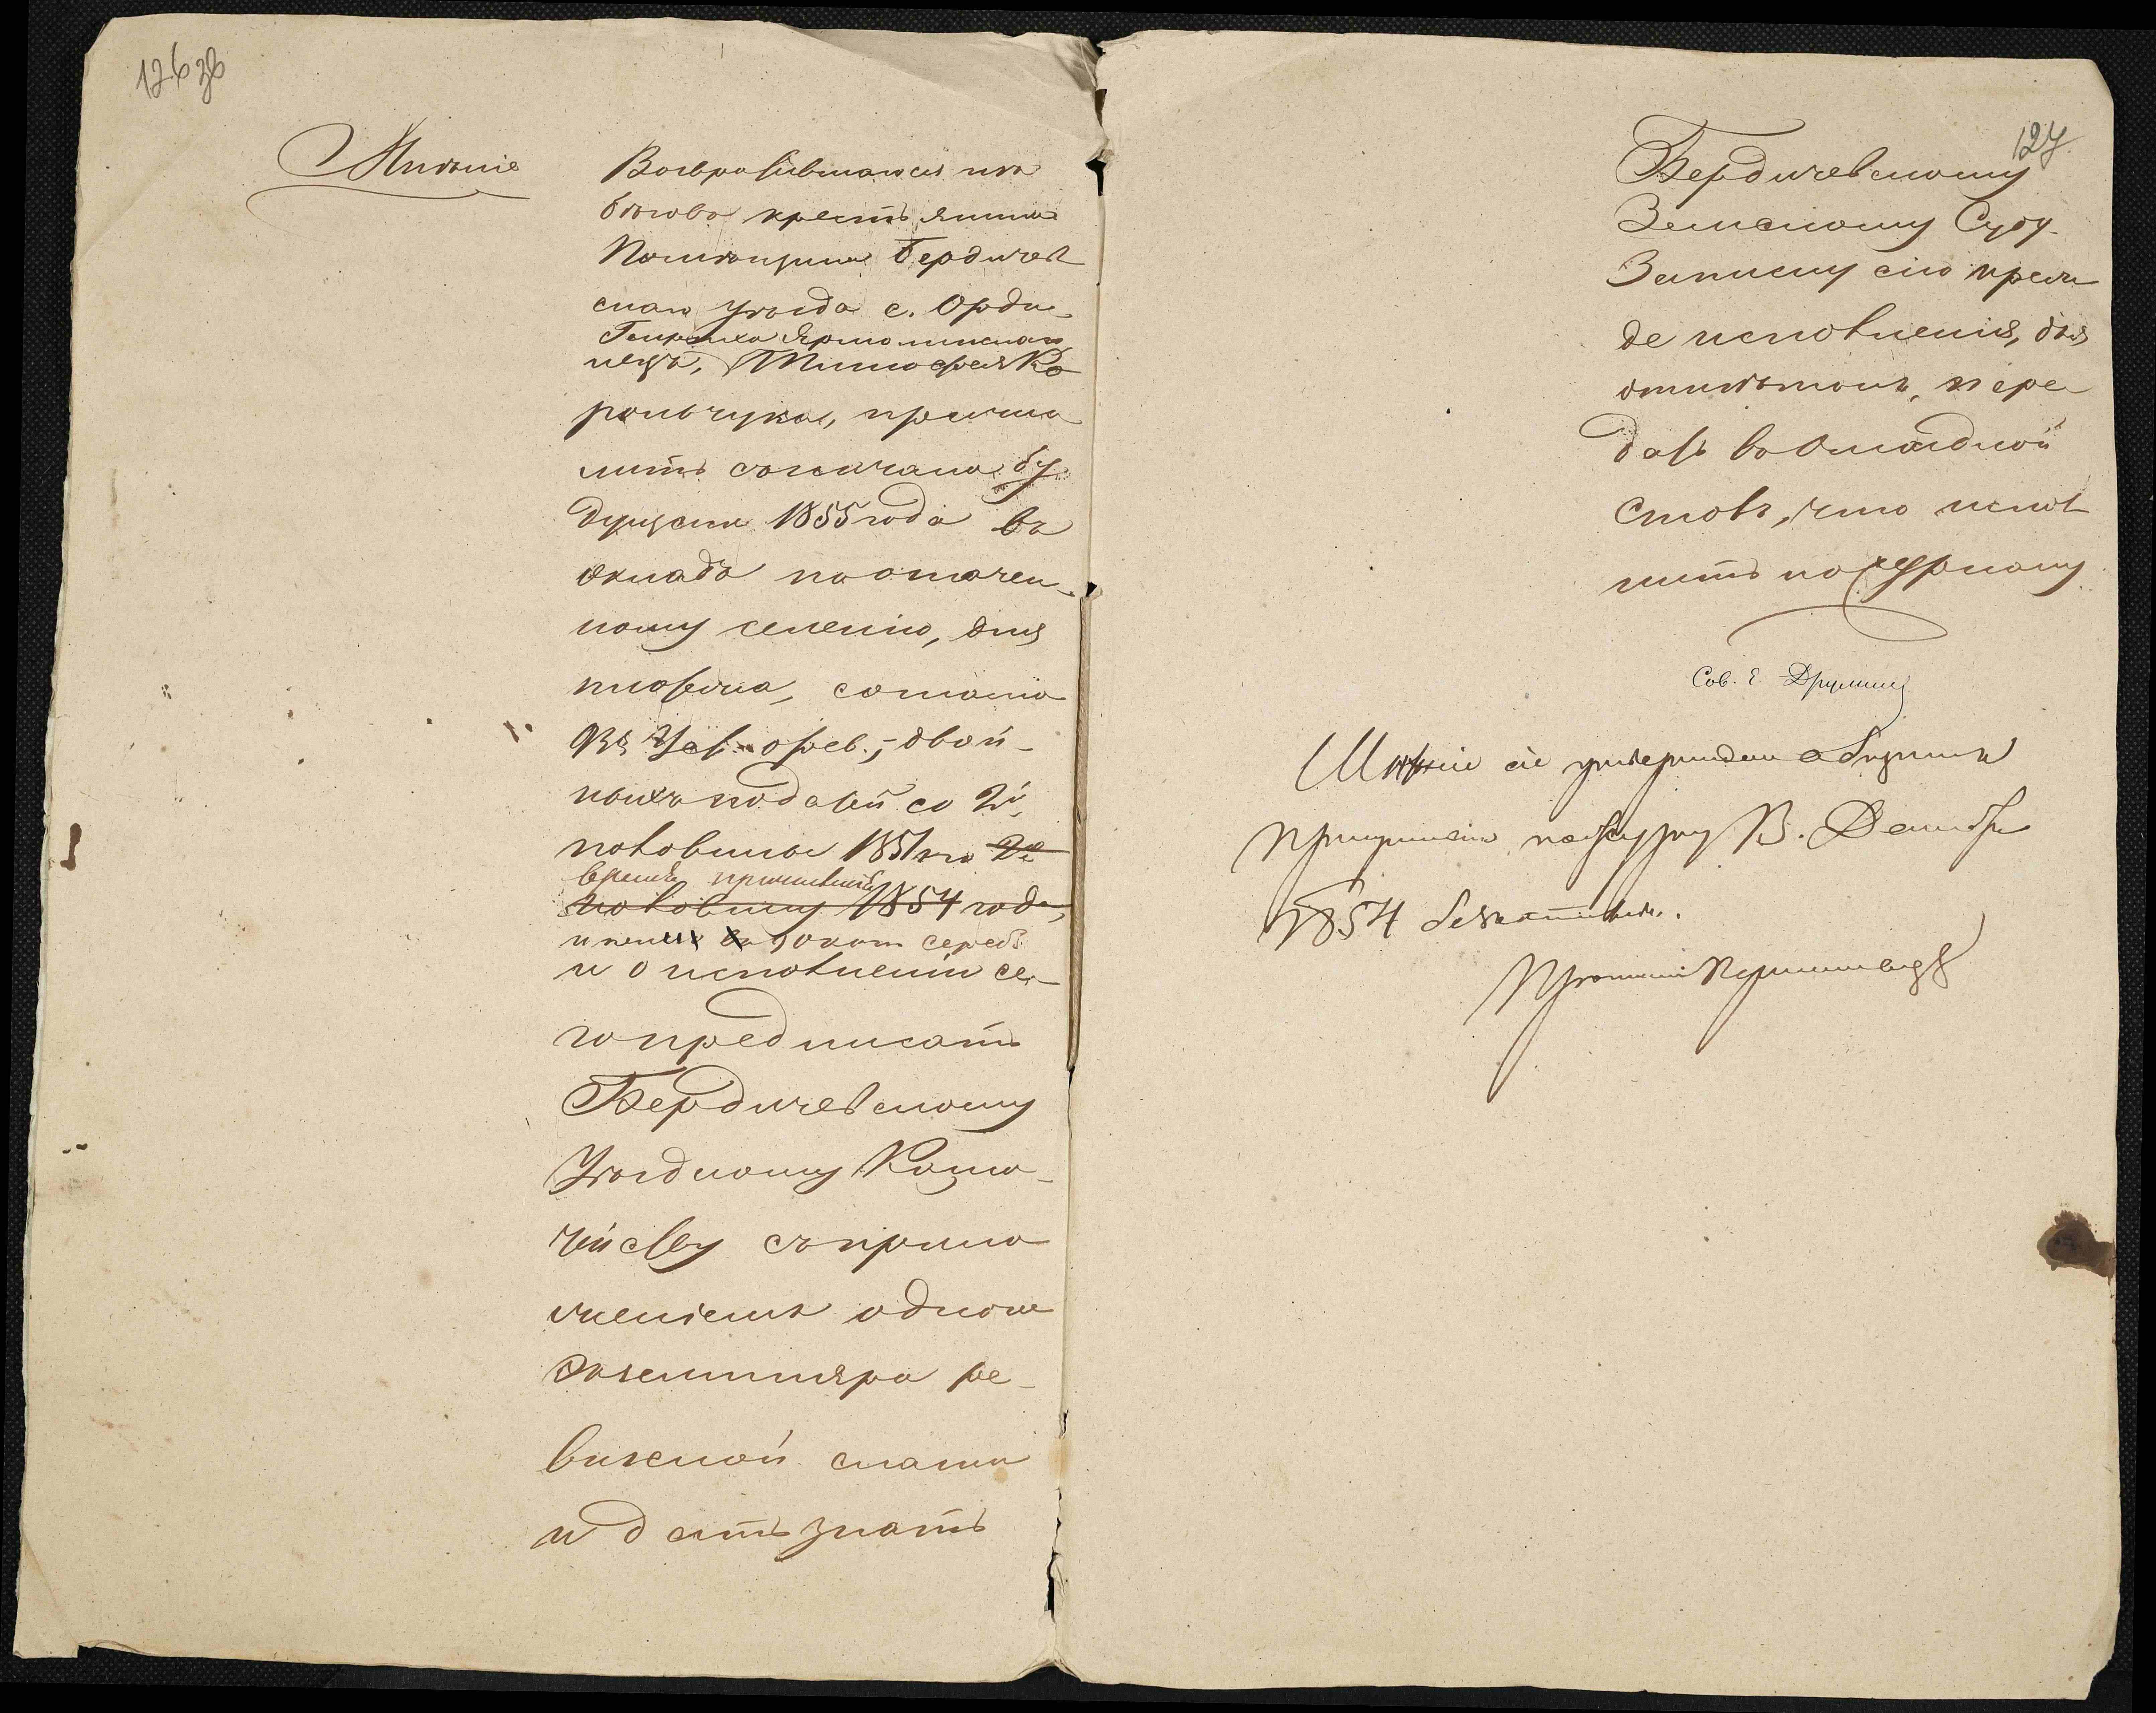 126 об
Мнѣніе
Возвратившагося изъ
бѣговъ крестьянина
Помѣщика Бердичев
скаго уѣзда с. Орди-
Генриха Ярмолинскаго
нецъ, Тимофея Ко
рольчука, причис
лить съ начала бу
дущаго 1855 года въ
окладъ по означен-
ному селенію, для
платежа, согласно
983 Уст. о рев., двой-
ныхъ податей со 2й
половины 1851 по 2ю
время причисленія
половину 1854 года,
и о исполненіи се-
го предписать
Бердичевскому
Уѣздному Казна-
чейству съ прило
женіемъ одного
экземпляра ре-
визской сказки
и дать знать
127
Бердичевскому
Земскому Суду.
Записку сію преж
де исполненія, для
отмѣтокъ, пере
дать въ Окладной
Столъ, что испол
нить по журналу
Сов. Е
Мнѣніе сіе утверждено общимъ
Присутствія по журналу 13. Декабря
1854